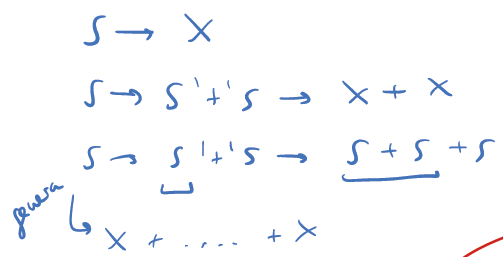 S → X
S → S '+' S → X + X
S → S '+' S → S + S + S
genera
X + .... + X